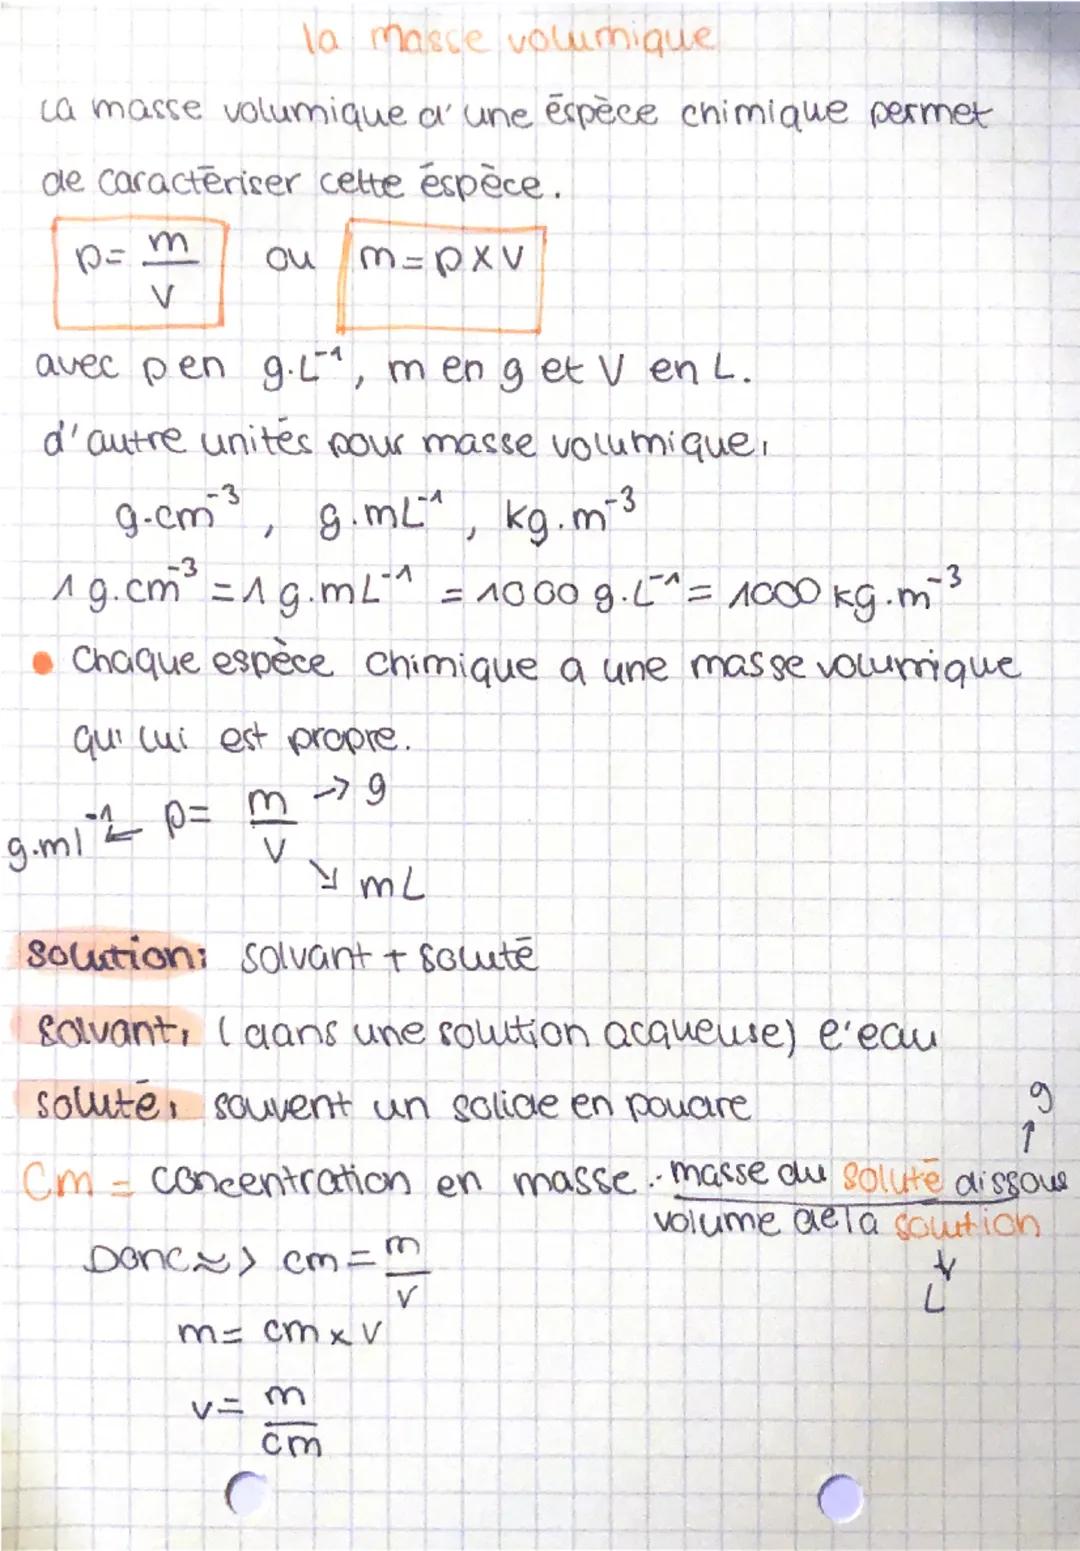 la masse volumique
La masse volumique d'une éspèce chimique permet
de caractériser cette éspèce.
ρ = m/V ou m = ρ × V
avec ρ en g.L⁻¹, m en g et V en L.
d'autre unités pour masse volumique:
g.cm⁻³, g.mL⁻¹, kg.m⁻³
1 g.cm⁻³ = 1 g.mL⁻¹ = 1000 g.L⁻¹ = 1000 kg.m⁻³
• Chaque espèce chimique a une masse volumique
qui lui est propre.
g.ml⁻¹ ← ρ = m/V → g
↘ mL
Solution: solvant + soluté
Solvant: (dans une solution acqueuse) l'eau
soluté: souvent un solide en poudre
g
↑
Cm = concentration en masse: masse du soluté dissous
volume de la solution
↓
L
Donc ≈> cm = m/v
m = cm × v
v = m/cm